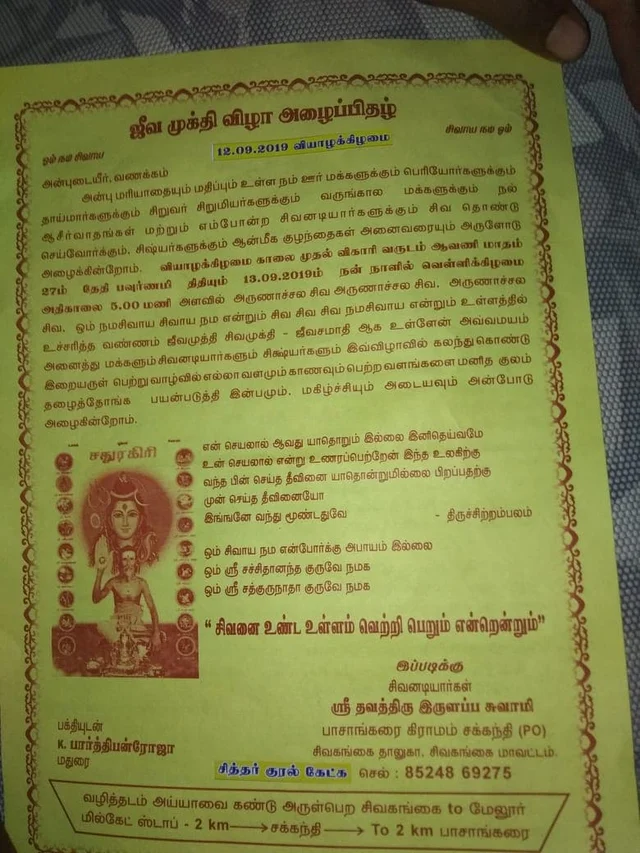 ஜீவ முக்தி விழா அழைப்பிதழ்
ஓம் நம சிவாய
12.09.2019 வியாழக்கிழமை
சிவாய நம ஓம்
அன்புடையீர், வணக்கம்
அன்பு மரியாதையும் மதிப்பும் உள்ள நம் ஊர் மக்களுக்கும் பெரியோர்களுக்கும்
தாய்மார்களுக்கும் சிறுவர் சிறுமியர்களுக்கும் வருங்கால மக்களுக்கும் நல்
ஆசீர்வாதங்கள் மற்றும் எம்போன்ற சிவனடியார்களுக்கும் சிவ தொண்டு
செய்வோர்க்கும். சிஷ்யர்களுக்கும் ஆன்மீக குழந்தைகள் அனைவரையும் அருளோடு
அழைக்கின்றோம். வியாழக்கிழமை காலை முதல் விகாரி வருடம் ஆவணி மாதம்
27ம் தேதி பவுர்ணமி திதியும் 13.09.2019ம் நன் நாளில் வெள்ளிக்கிழமை
அதிகாலை 5.00 மணி அளவில் அருணாச்சல சிவ அருணாச்சல சிவ. அருணாச்சல
சிவ, ஓம் நமசிவாய சிவாய நம என்றும் சிவ சிவ சிவ நமசிவாய என்றும் உள்ளத்தில்
உச்சரித்த வண்ணம் ஜீவமுத்தி சிவமுக்தி - ஜீவசமாதி ஆக உள்ளேன் அவ்வமயம்
அனைத்து மக்களும் சிவனடியார்களும் சிக்ஷ்யர்களும் இவ்விழாவில் கலந்து கொண்டு
இறையருள் பெற்று வாழ்வில் எல்லா வளமும் காணவும் பெற்ற வளங்களை மனித குலம்
தழைத்தோங்க பயன்படுத்தி இன்பமும். மகிழ்ச்சியும் அடையவும் அன்போடு
அழைகின்றோம்.
சதுரகிரி
என் செயலால் ஆவது யாதொறும் இல்லை இனிதெய்வமே
உன் செயலால் என்று உணரப்பெற்றேன் இந்த உலகிற்கு
வந்த பின் செய்த தீவினை யாதொன்றுமில்லை பிறப்பதற்கு
முன் செய்த தீவினையோ
இங்ஙனே வந்து மூண்டதுவே - திருச்சிற்றம்பலம்
ஓம் சிவாய நம என்போர்க்கு அபாயம் இல்லை
ஓம் ஸ்ரீ சச்சிதானந்த குருவே நமக
ஓம் ஸ்ரீ சத்குருநாதா குருவே நமக
“ சிவனை உண்ட உள்ளம் வெற்றி பெறும் என்றென்றும்”
இப்படிக்கு
சிவனடியார்கள்
ஸ்ரீ தவத்திரு இருளப்ப சுவாமி
பாசாங்கரை கிராமம் சக்கந்தி (PO)
சிவகங்கை தாலுகா, சிவகங்கை மாவட்டம்.
பக்தியுடன்
K. பார்த்திபன்ரோஜா
மதுரை
சித்தர் குரல் கேட்க செல் : 85248 69275
வழித்தடம் அய்யாவை கண்டு அருள்பெற சிவகங்கை to மேலூர்
மில்கேட் ஸ்டாப் - 2 km → சக்கந்தி → To 2 km பாசாங்கரை